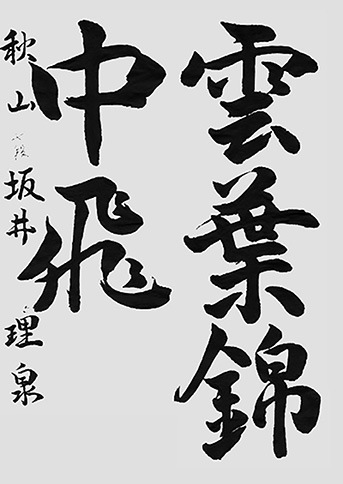 雲葉錦
中飛
秋山 六段 坂井 理泉